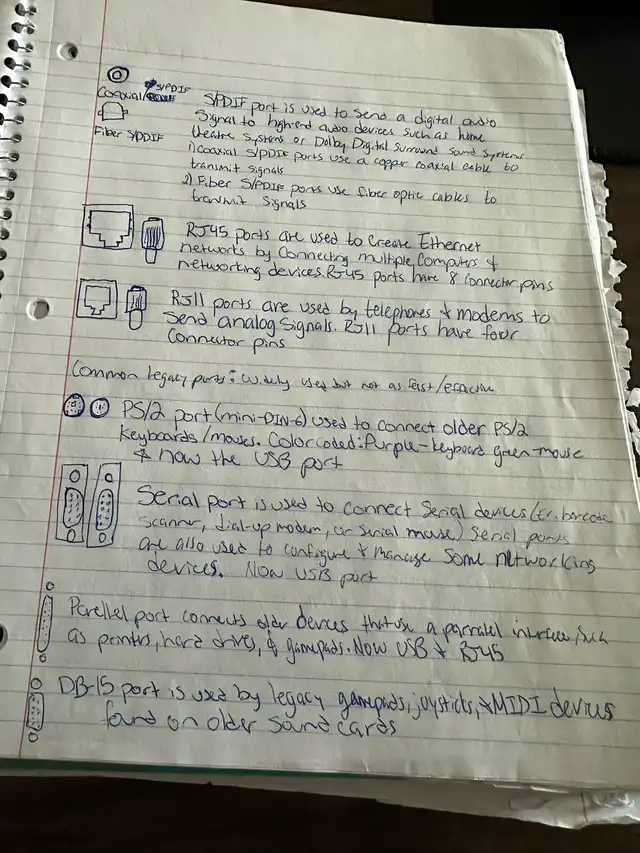 S/PDIF
Coaxial/
Fiber S/PDIF
S/PDIF port is used to send a digital audio
Signal to high-end audio devices such as home
theatre systems or Dolby Digital surround sound systems
1) coaxial S/PDIF ports use a copper coaxial cable to
transmit signals
2) Fiber S/PDIF ports use fiber optic cables to
transmit signals
RJ45 ports are used to create Ethernet
networks by connecting multiple computers &
networking devices. RJ45 ports have 8 connector pins
RJ11 ports are used by telephones & modems to
Send analog signals. RJ11 ports have four
Connector pins
Common legacy ports: Widely used but not as fast/effective
PS/2 port (mini-DIN-6) used to connect older PS/2
keyboards/mouses. Color coded: Purple-keyboard green-mouse
& now the USB port
Serial port is used to connect Serial devices (Ex. barcode
scanner, dial-up modem, or serial mouse) Serial ports
are also used to configure & manage some networking
devices. Now USB port
Parellel port connects older devices that use a parralel interface such
as printers, hard drives, & gamepads. Now USB & RJ45
DB-15 port is used by legacy gamepads, joysticks, & MIDI devices
found on older sound cards